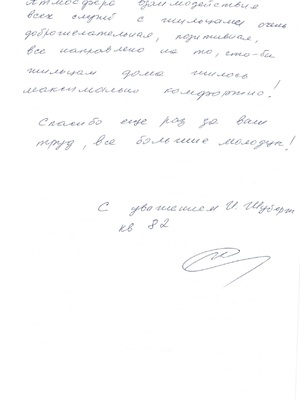 Атмосфера взаимодействия
всех служб с жильцами очень
доброжелательная, позитивная,
все направлено на то, что-бы
жильцам дома жилось
максимально комфортно!
Спасибо еще раз за ваш
труд, все большие молодцы!
С уважением И. Шуберт
кв 82